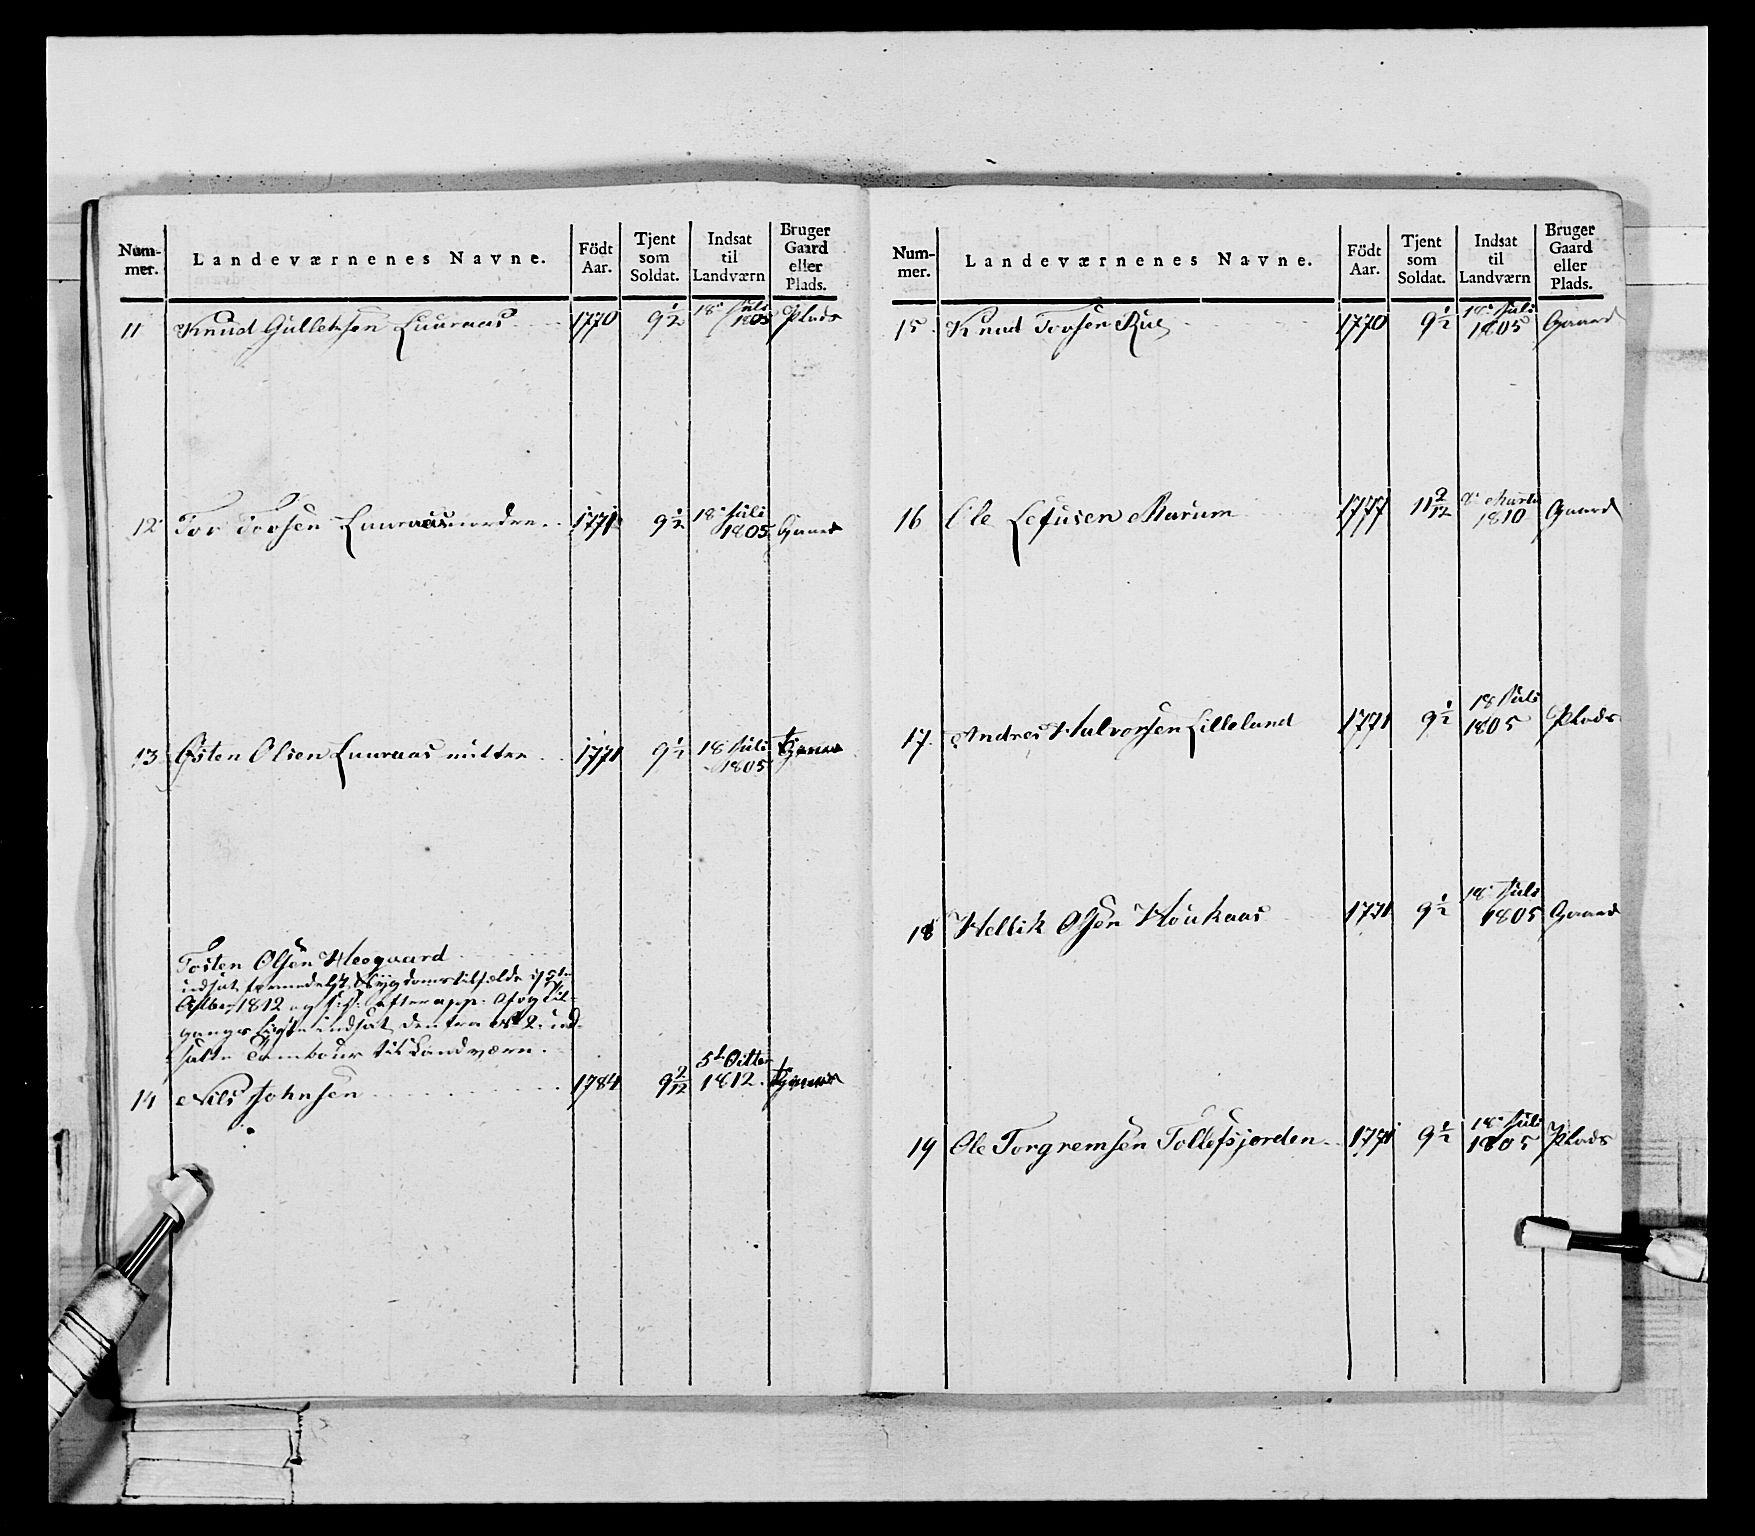 Num-
mer.
Landeværnenes Navne.
Födt
Aar.
Tjent
som
Soldat.
Indsat
til
Landværn
Bruger
Gaard
eller
Plads.
11 Knud Gulleksen Luuraas 1770 9 1/2 18 Juli 1805 Plads
12 Tov Tovsen Luuraas nordre 1771 9 1/2 18 Juli 1805 Gaard
13 Østen Olsen Luuraas mittre 1771 9 1/2 18 Juli 1805
Tosten Olsen
indsat formedelst Sygdomstilfælde
1812 og efter app: Afog Til-
gangs Liste indsat den fra No 2 ind-
satte Tambour til Landværn.
14 Nils Johnsen 1784 9 2/12 5t Octbr 1812
Num-
mer.
Landeværnenes Navne.
Födt
Aar.
Tjent
som
Soldat.
Indsat
til
Landværn
Bruger
Gaard
eller
Plads.
15 Knud Tovsen Rue 1770 9 1/2 18 Juli 1805 Gaard
16 Ole Marum 1777 11 2/12 Marts 1810 Gaard
17 Andres Halvorsen Lilleland 1771 9 1/2 18 Juli 1805 Plads
18 Hellik Olsen Houkaas 1771 9 1/2 18 Juli 1805 Gaard
19 Ole Torgremsen Tollefsjorden 1771 9 1/2 18 Juli 1805 Plads